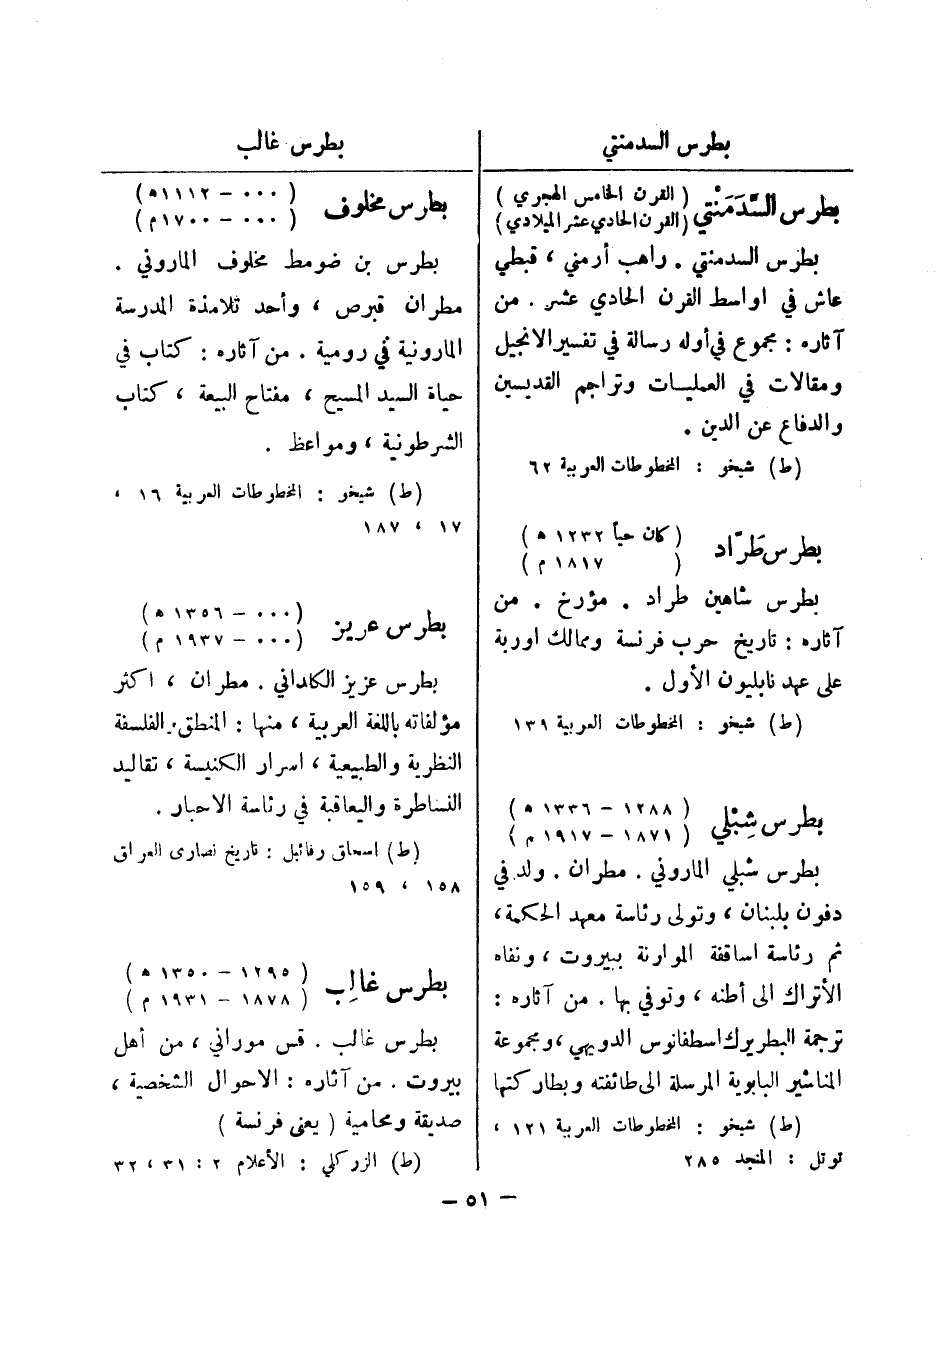 بطرس السدمنتي
بطرس السَّدَمَنْتي ( القرن الخامس الهجري )
( القرن الحادي عشر الميلادي )
بطرس السدمنتي . راهب أرمني ، قبطي
عاش في اواسط القرن الحادي عشر . من
آثاره : مجموع في أوله رسالة في تفسير الانجيل
ومقالات في العمليات وتراجم القديسين
والدفاع عن الدين .
(ط) شيخو : المخطوطات العربية ٦٢
بطرس طَرّاد ( كان حياً ١٢٣٢ ه )
( ١٨١٧ م )
بطرس شاهين طراد . مؤرخ . من
آثاره : تاريخ حرب فرنسة وممالك اوربة
على عهد نابليون الأول .
(ط) شيخو : المخطوطات العربية ١٣٩
بطرس شِبْلي ( ١٢٨٨ – ١٣٣٦ ه )
( ١٨٧١ – ١٩١٧ م )
بطرس شبلي الماروني . مطران . ولد في
دفون بلبنان ، وتولى رئاسة معهد الحكمة ،
ثم رئاسة اساقفة الموارنة ببيروت ، ونفاه
الأتراك الى أطنه ، وتوفي بها . من آثاره :
ترجمة البطريرك اسطفانوس الدويهي ، ومجموعة
المناشير البابوية المرسلة الى طائفته وبطاركتها
(ط) شيخو : المخطوطات العربية ١٢١ ،
توتل : المنجد ٢٨٥
بطرس غالب
بطرس مخلوف ( ٠٠٠ – ١١١٢ه )
( ٠٠٠ – ١٧٠٠م )
بطرس بن ضومط مخلوف الماروني .
مطران قبرص ، وأحد تلامذة المدرسة
المارونية في رومية . من آثاره : كتاب في
حياة السيد المسيح ، مفتاح البيعة ، كتاب
الشرطونية ، ومواعظ .
(ط) شيخو : المخطوطات العربية ١٦ ،
١٧ ، ١٨٧
بطرس عزيز (٠٠٠ – ١٣٥٦ ه )
(٠٠٠ – ١٩٣٧ م )
بطرس عزيز الكلداني . مطران ، اكثر
مؤلفاته باللغة العربية ، منها : المنطق، الفلسفة
النظرية والطبيعية ، اسرار الكنيسة ، تقاليد
النساطرة واليعاقبة في رئاسة الاحبار .
(ط) اسحاق رفائيل : تاريخ نصارى العراق
١٥٨ ، ١٥٩
بطرس غالِب ( ١٢٩٥ – ١٣٥٠ ه )
( ١٨٧٨ – ١٩٣١ م )
بطرس غالب . قس موراني ، من أهل
بيروت . من آثاره : الاحوال الشخصية ،
صديقة ومحامية ( يعنى فرنسة )
(ط) الزركلي : الأعلام ٢ : ٣١ ، ٣٢
– ٥١ –